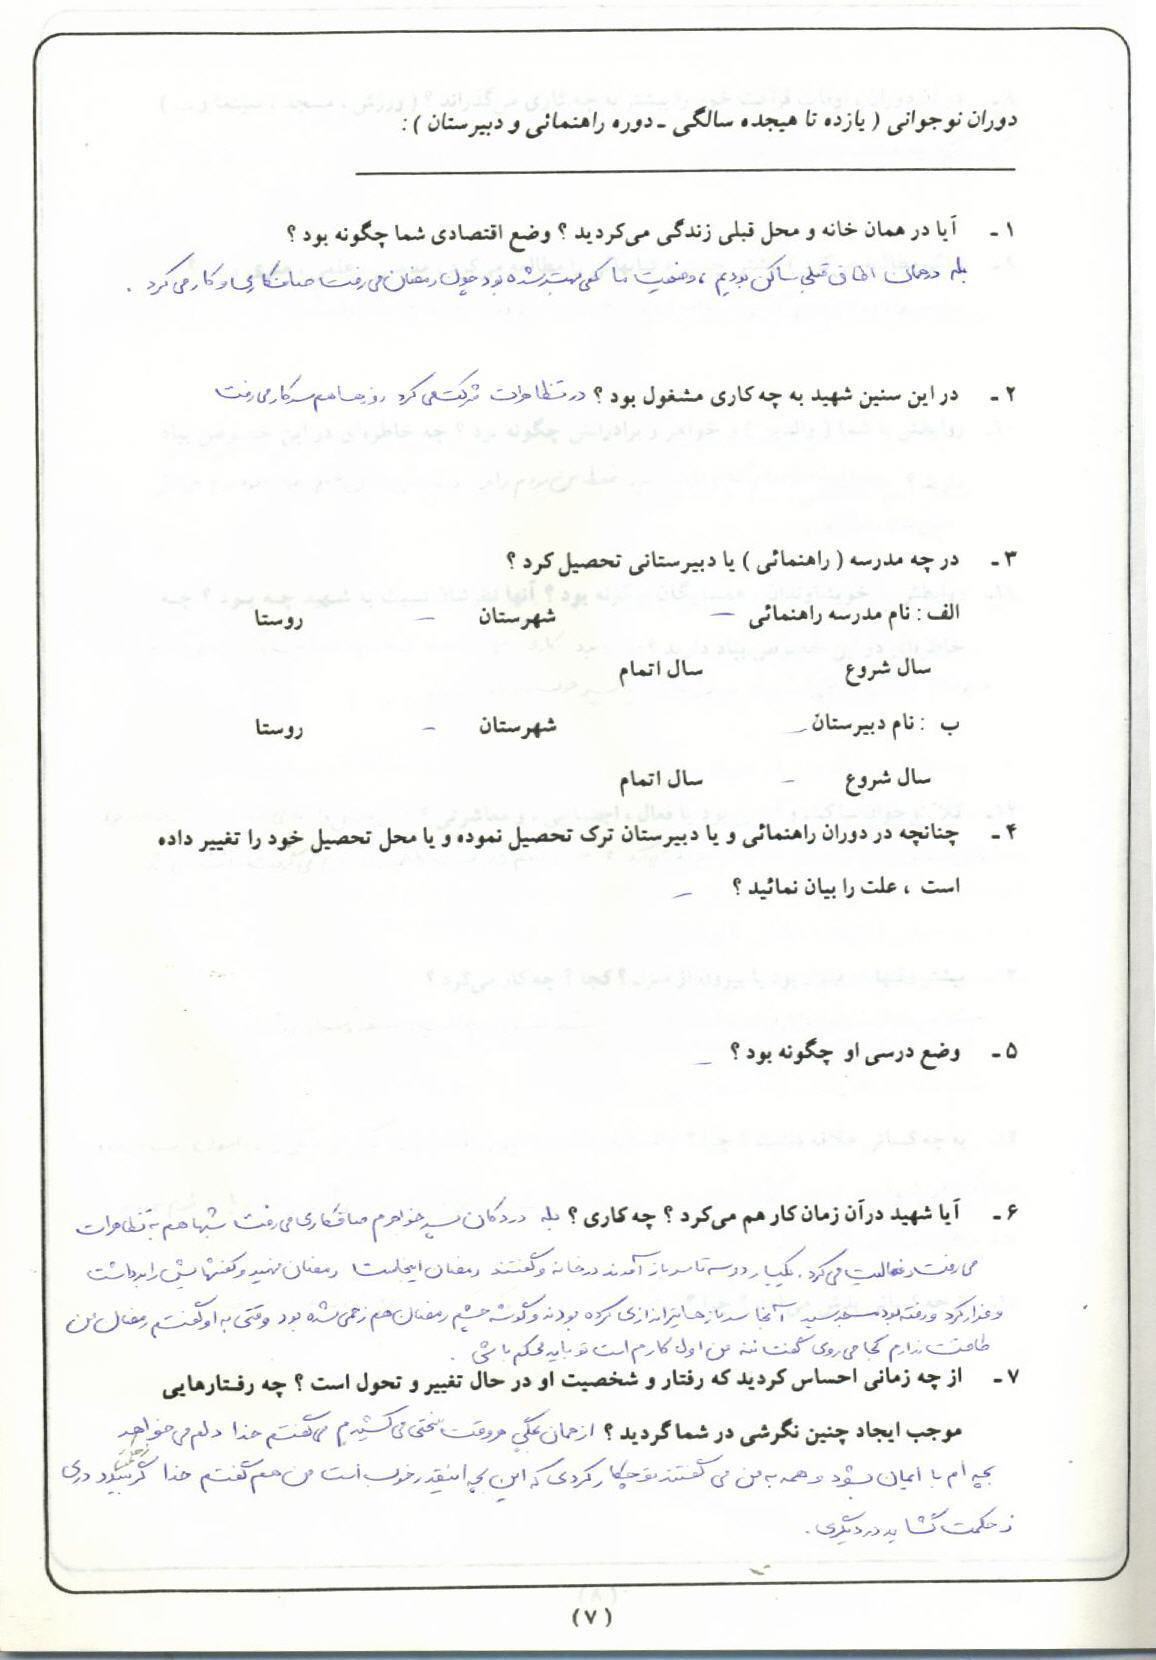 دوران نوجوانی ( یازده تا هیجده سالگی ـ دوره راهنمائی و دبیرستان ) :
۱ ـ آیا در همان خانه و محل قبلی زندگی می‌کردید ؟ وضع اقتصادی شما چگونه بود ؟
بله در همان اطاق قبلی ساکن بودیم ، وضعیت ما کمی بهتر شده بود چون رمضان می رفت صافکاری و کار می کرد .
۲ ـ در این سنین شهید به چه کاری مشغول بود ؟ در تظاهرات شرکت می کرد روزها هم سر کار می رفت
۳ ـ در چه مدرسه ( راهنمائی ) یا دبیرستانی تحصیل کرد ؟
الف : نام مدرسه راهنمائی — شهرستان — روستا
سال شروع سال اتمام
ب : نام دبیرستان — شهرستان — روستا
سال شروع — سال اتمام
۴ ـ چنانچه در دوران راهنمائی و یا دبیرستان ترک تحصیل نموده و یا محل تحصیل خود را تغییر داده
است ، علت را بیان نمائید ؟ —
۵ ـ وضع درسی او چگونه بود ؟ —
۶ ـ آیا شهید در آن زمان کار هم می‌کرد ؟ چه کاری ؟ بله در دکان پسر خواهرم صافکاری می رفت شبها هم به تظاهرات
می رفت و فعالیت می کرد . یکبار دو سه تا سرباز آمدند در خانه و گفتند رمضان اینجاست رمضان فهمید و کفشهایش را برداشت
و فرار کرد و رفته بود مسجد سید آنجا سربازها تیراندازی کرده بودند و گوشه چشم رمضان هم زخمی شده بود وقتی به او گفتم رمضان من
طاقت ندارم کجا می روی گفت ننه من اول کارم است تو باید محکم باشی .
۷ ـ از چه زمانی احساس کردید که رفتار و شخصیت او در حال تغییر و تحول است ؟ چه رفتارهایی
موجب ایجاد چنین نگرشی در شما گردید ؟ از همان بچگی هر وقت سختی می کشیدم می گفتم خدا دلم می خواهد
بچه ام با ایمان بشود و همه به من می گفتند تو چکار کردی که این بچه اینقدر خوب است من هم گفتم خدا گر ببندد دری
ز حکمت گشاید در دیگری .
(۷)